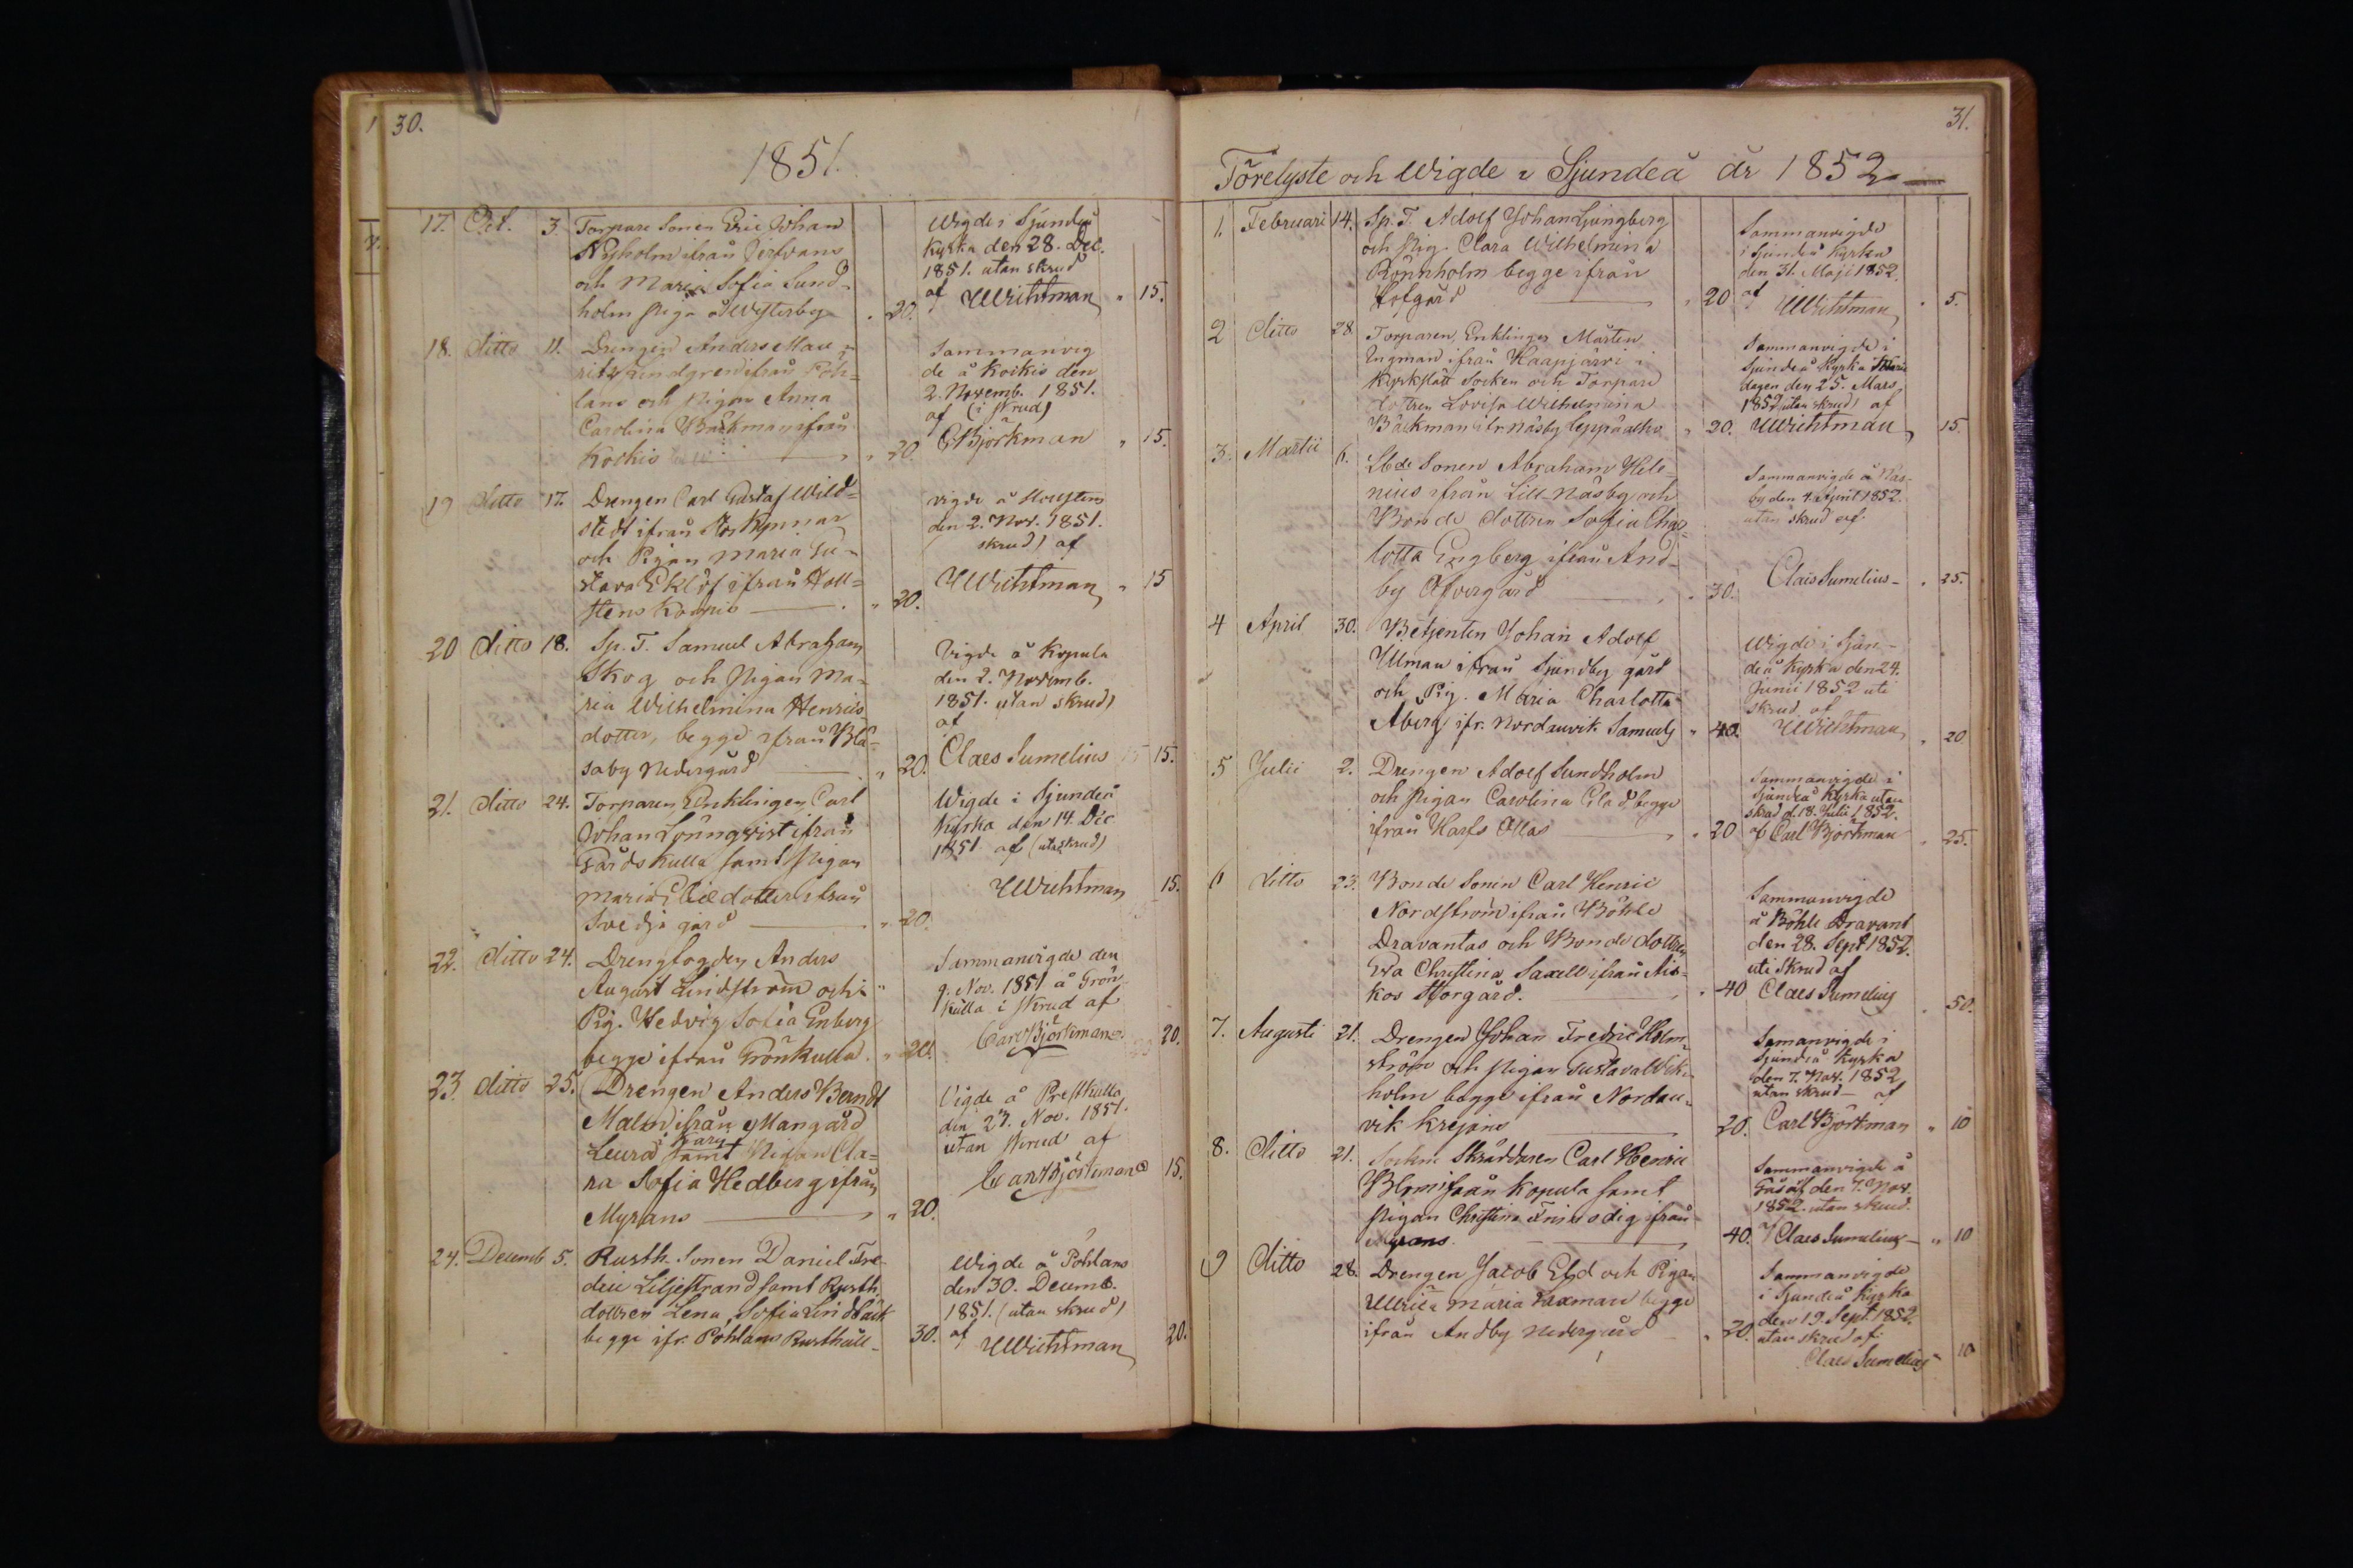 30.
1851.
17. Oct. 3. Torpare Sonen Eric Johan
Nyholm ifrån Jerfvans
och Maria Sofia Sund-
holm Piga å Westerby " 20.
Wigde i Sjundeå
Kyrka den 28. Dec.
1851. utan skrud
af UWichtman " 15.
18. ditto 11. Drengen Anders Mau-
ritz Lindgren ifrån Poh=
lans och Pigan Anna
Carolina Bäckman ifrån
Kockis " 20.
Sammanvig
de å Kockis den
2. Novemb. 1851.
af (i skrud)
CBjörkman " 15.
19 ditto 17. Drengen Carl Gustaf Wild=
stedt ifrån Storkyrnnar
och Pigan Maria Gu-
stava Eklöf ifrån Holl=
stens Koppis " 20.
vigde å
den 2. Nov. 1851.
skrud) af
UWichtman " 15
20 ditto 18. Sp. T. Samuel Abraham
Skog och Pigan Ma-
ria Wilhelmina Henrics
dotter, begge ifrån Blå-
saby Nedergård " 20.
Vigde å Kopula
den 2. Novemb.
1851. utan skrud)
af
Claes Sumelius 15.
21. ditto 24. Torparen Enklingen Carl
Johan Lönnqvist ifrån
Gårdskulla samt Pigan
Maria dotter ifrån
Svedja gård " 20.
Wigde i Sjundeå
Kyrka den 14. Dec
1851. af (utan skrud)
UWichtman 15.
22. ditto 24. Drengfogden Anders
August Lindström och
Pig. Hedvig Sofia Enberg
begge ifrån Grönkulla. " 20.
Sammanvigde den
9. Nov. 1851 å Grön
kulla i skrud af
Carl Björkman 20.
23. ditto 25. Drengen Anders Berndt
Malm ifrån Mangård
Leurå samt Pigan Cla=
ra Sofia Hedberg ifrån
Myrans " 20.
Vigde å Prestkulla
den 23. Nov. 1851.
utan skrud af
Carl Björkman 15.
24. Decemb 5. Rusth. Sonen Daniel Fre
dric Liljestrand samt Rusth.
dottren Lena Sofia Lindbäck
begge ifr. Pohlans Rusthåll- 30.
Wigde å Pohlans
den 30. Decemb.
1851. (utan skrud)
af UWichtman 20.
31.
Förelyste och Wigde i Sjundeå år 1852
1. Februari 14. Sp. T. Adolf Johan Ljungberg
och Pig. Clara Wilhelmina
Rönnholm begge ifrån
Hofgård " 20
Sammanvigde
i Sjundeå Kyrka
den 31. Maji 1852.
af UWichtman " 5.
2 ditto 28. Torparen, Enklingen Mårten
Ingman ifrån Haapjärvi i
Kyrkslätt Socken och Torpare
dottren Lovisa Wilhelmina
Bäckman ifr. Näsby Leppälaks " 20.
Sammanvigde i
Sjundeå Kyrka Marie
dagen den 25. Mars
1852 (utan skrud) af
UWichtman 15.
3. Martii 6. Lbde Sonen Abraham Hele-
nius ifrån Lill Näsby och
Bonde dottren Sofia Char-
lotta Engberg ifrån And-
by Öfvergård " 30.
Sammanvigde å Näs-
by den 4. April 1852.
utan skrud af
Claes Sumelius- " 25.
4 April 30. Betjenten Johan Adolf
Ullman ifrån Sjundby gård
och Pig. Maria Charlotta
Åberg ifr. Nordanvik Samuels " 40.
Wigde i Sjun-
deå Kyrka den 24.
Junii 1852 uti
skrud af
UWichtman " 20
5 Julii 2. Drengen Adolf Sundholm
och Pigan Carolina Glad, begge
ifrån Harfs Ollas " 20
Sammanvigde i
Sjundeå Kyrka utan
skrud d. 18. Julii 1852.
af Carl Björkman " 25.
6 ditto 23. Bonde Sonen Carl Henric
Nordström ifrån Böhle
Dravantas och Bonde dottren
Eva Christina Saxell ifrån Ais-
kos Storgård. " 40
Sammanvigde
å Böhle Dravant
den 28. Sept 1852.
uti Skrud af
Claes Sumelius " 50.
7. Augusti 21. Drengen Johan Fredric Holm-
ström och Pigan Gustava Wik-
holm begge ifrån Nordan-
vik Krejans 20.
Samanvigde i
Sjundeå Kyrka
den 7. Nov. 1852
utan skrud- af
Carl Björkman " 10
8. ditto 21. Socken Skräddaren Carl Henric
Blom ifrån Kopula samt
Pigan Christina Frisodig ifrån
Myrans. 40.
Sammanvigde å
Gåsöf den 7. Nov.
1852. utan skrud.
af Claes Sumelius- " 10
9 ditto 28. Drengen Jacob Eld och Pigan
Ulrica Maria Laxman begge
ifrån Andby Nedergård " 20.
Sammanvigde
i Sjundeå Kyrka
den 19. Sept. 1852.
utan skrud af
Claes Sumelius 10